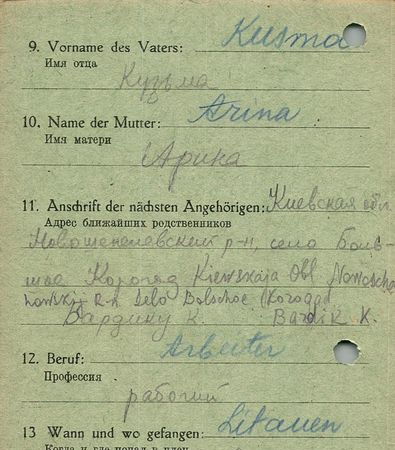 9. Vorname des Vaters: Kusma
Имя отца
Кузьма
10. Name der Mutter: Arina
Имя матери
Арина
11. Anschrift der nächsten Angehörigen: Киевская обл.
Адрес ближайших родственников
р-н, село Боль-
Корогод Kiewskaja Obl Nowosche
R-n Selo Bolschoe Korogod
Бардику К. Bardik K.
12. Beruf: Arbeiter
Профессия
рабочий
13 Wann und wo gefangen: Litauen
Когда и где попал в плен